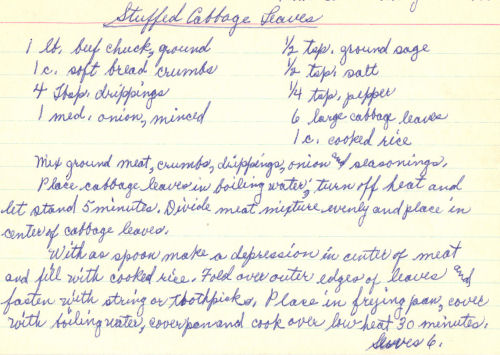 Stuffed Cabbage Leaves
1 lb. beef chuck, ground
1 c. soft bread crumbs
4 Tbsp. drippings
1 med. onion, minced
1/2 tsp. ground sage
1/2 tsp. salt
1/4 tsp. pepper
6 large cabbage leaves
1 c. cooked rice
Mix ground meat, crumbs, drippings, onion and seasonings.
Place cabbage leaves in boiling water; turn off heat and
let stand 5 minutes. Divide meat mixture evenly and place in
center of cabbage leaves.
With as spoon make a depression in center of meat
and fill with cooked rice. Fold over outer edges of leaves and
fasten with string or toothpicks. Place in frying pan, cover
with boiling water, cover pan and cook over low heat 30 minutes.
Serves 6.